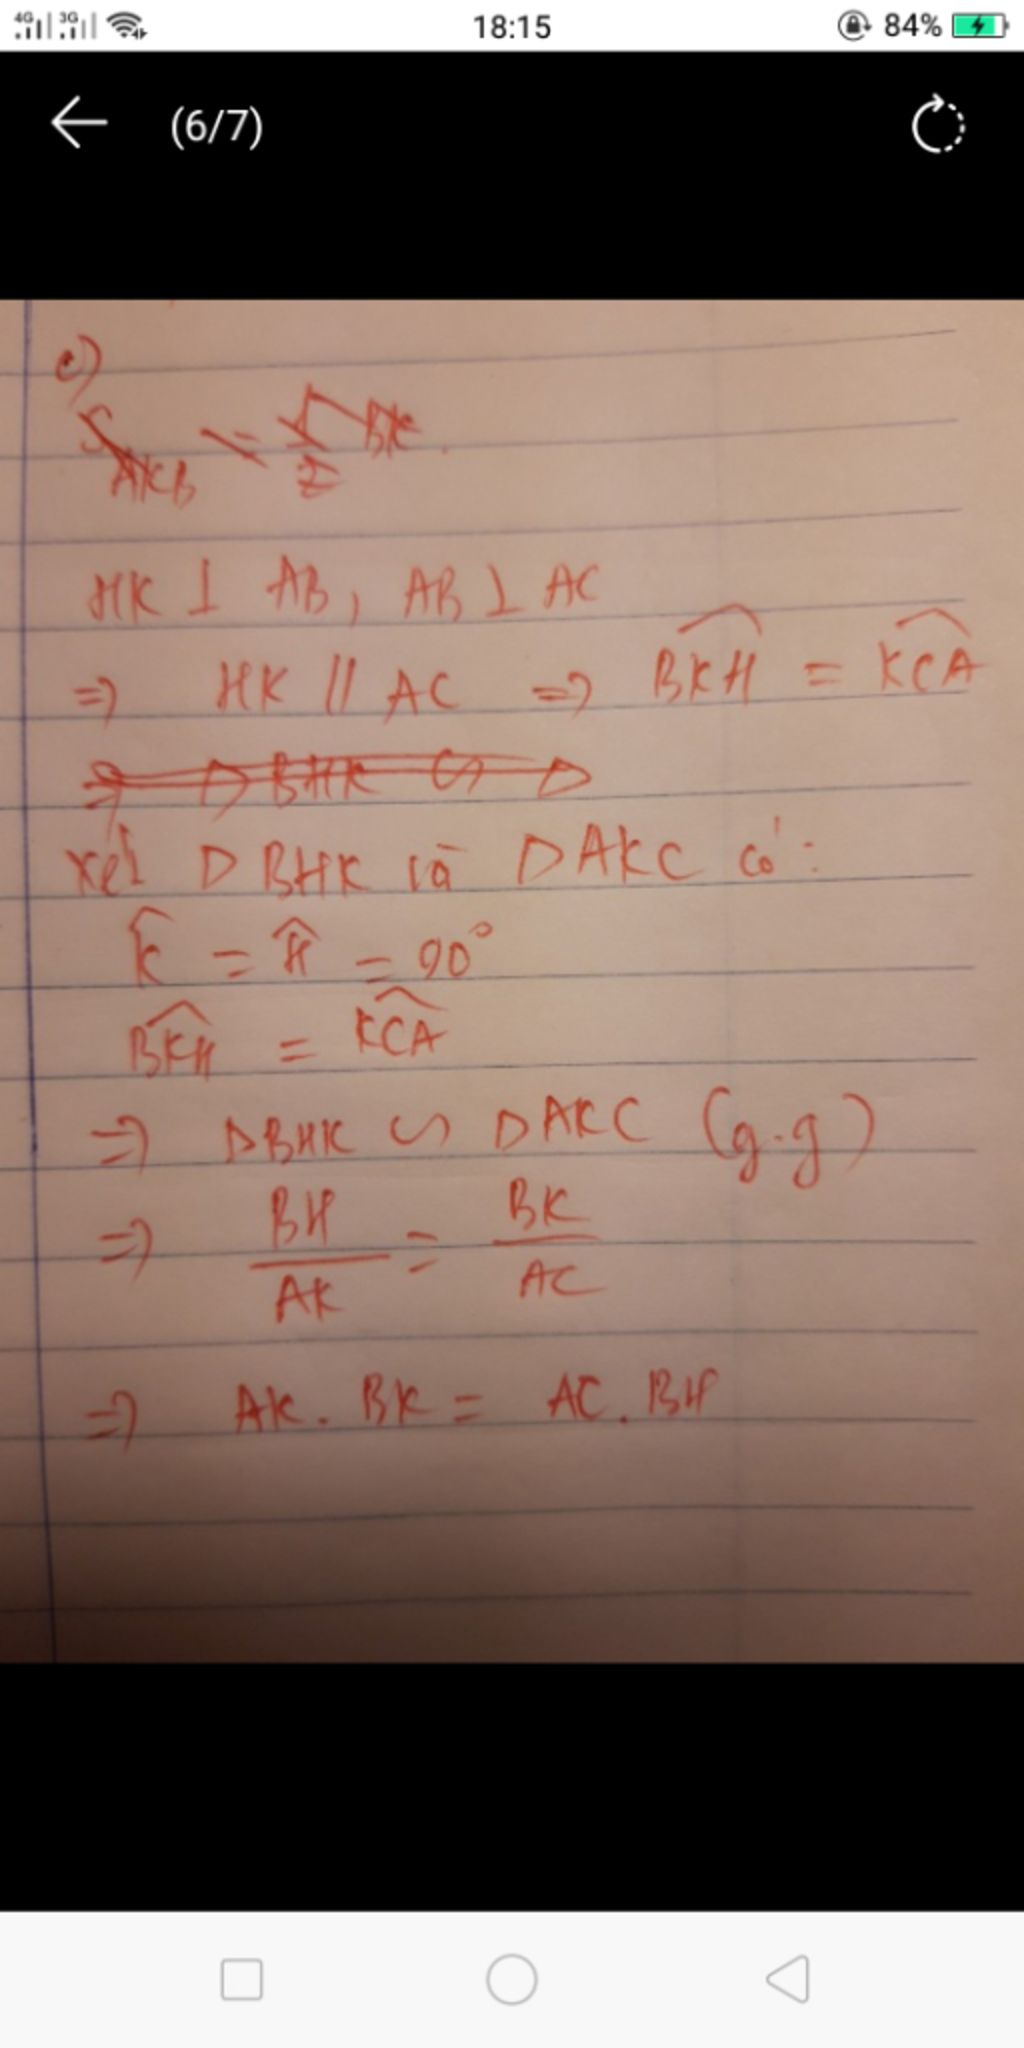 4G 3G 18:15 84%
(6/7)
c)
S_AKB = 1/2 BK.
HK ⊥ AB, AB ⊥ AC
=> HK // AC => \widehat{BKH} = \widehat{KCA}
=> Δ BHK ∽ Δ
xét Δ BHK và Δ AKC có:
\widehat{K} = \widehat{H} = 90°
\widehat{BKH} = \widehat{KCA}
=> Δ BHK ∽ Δ AKC (g.g)
=> BH/AK = BK/AC
=> AK . BK = AC . BH